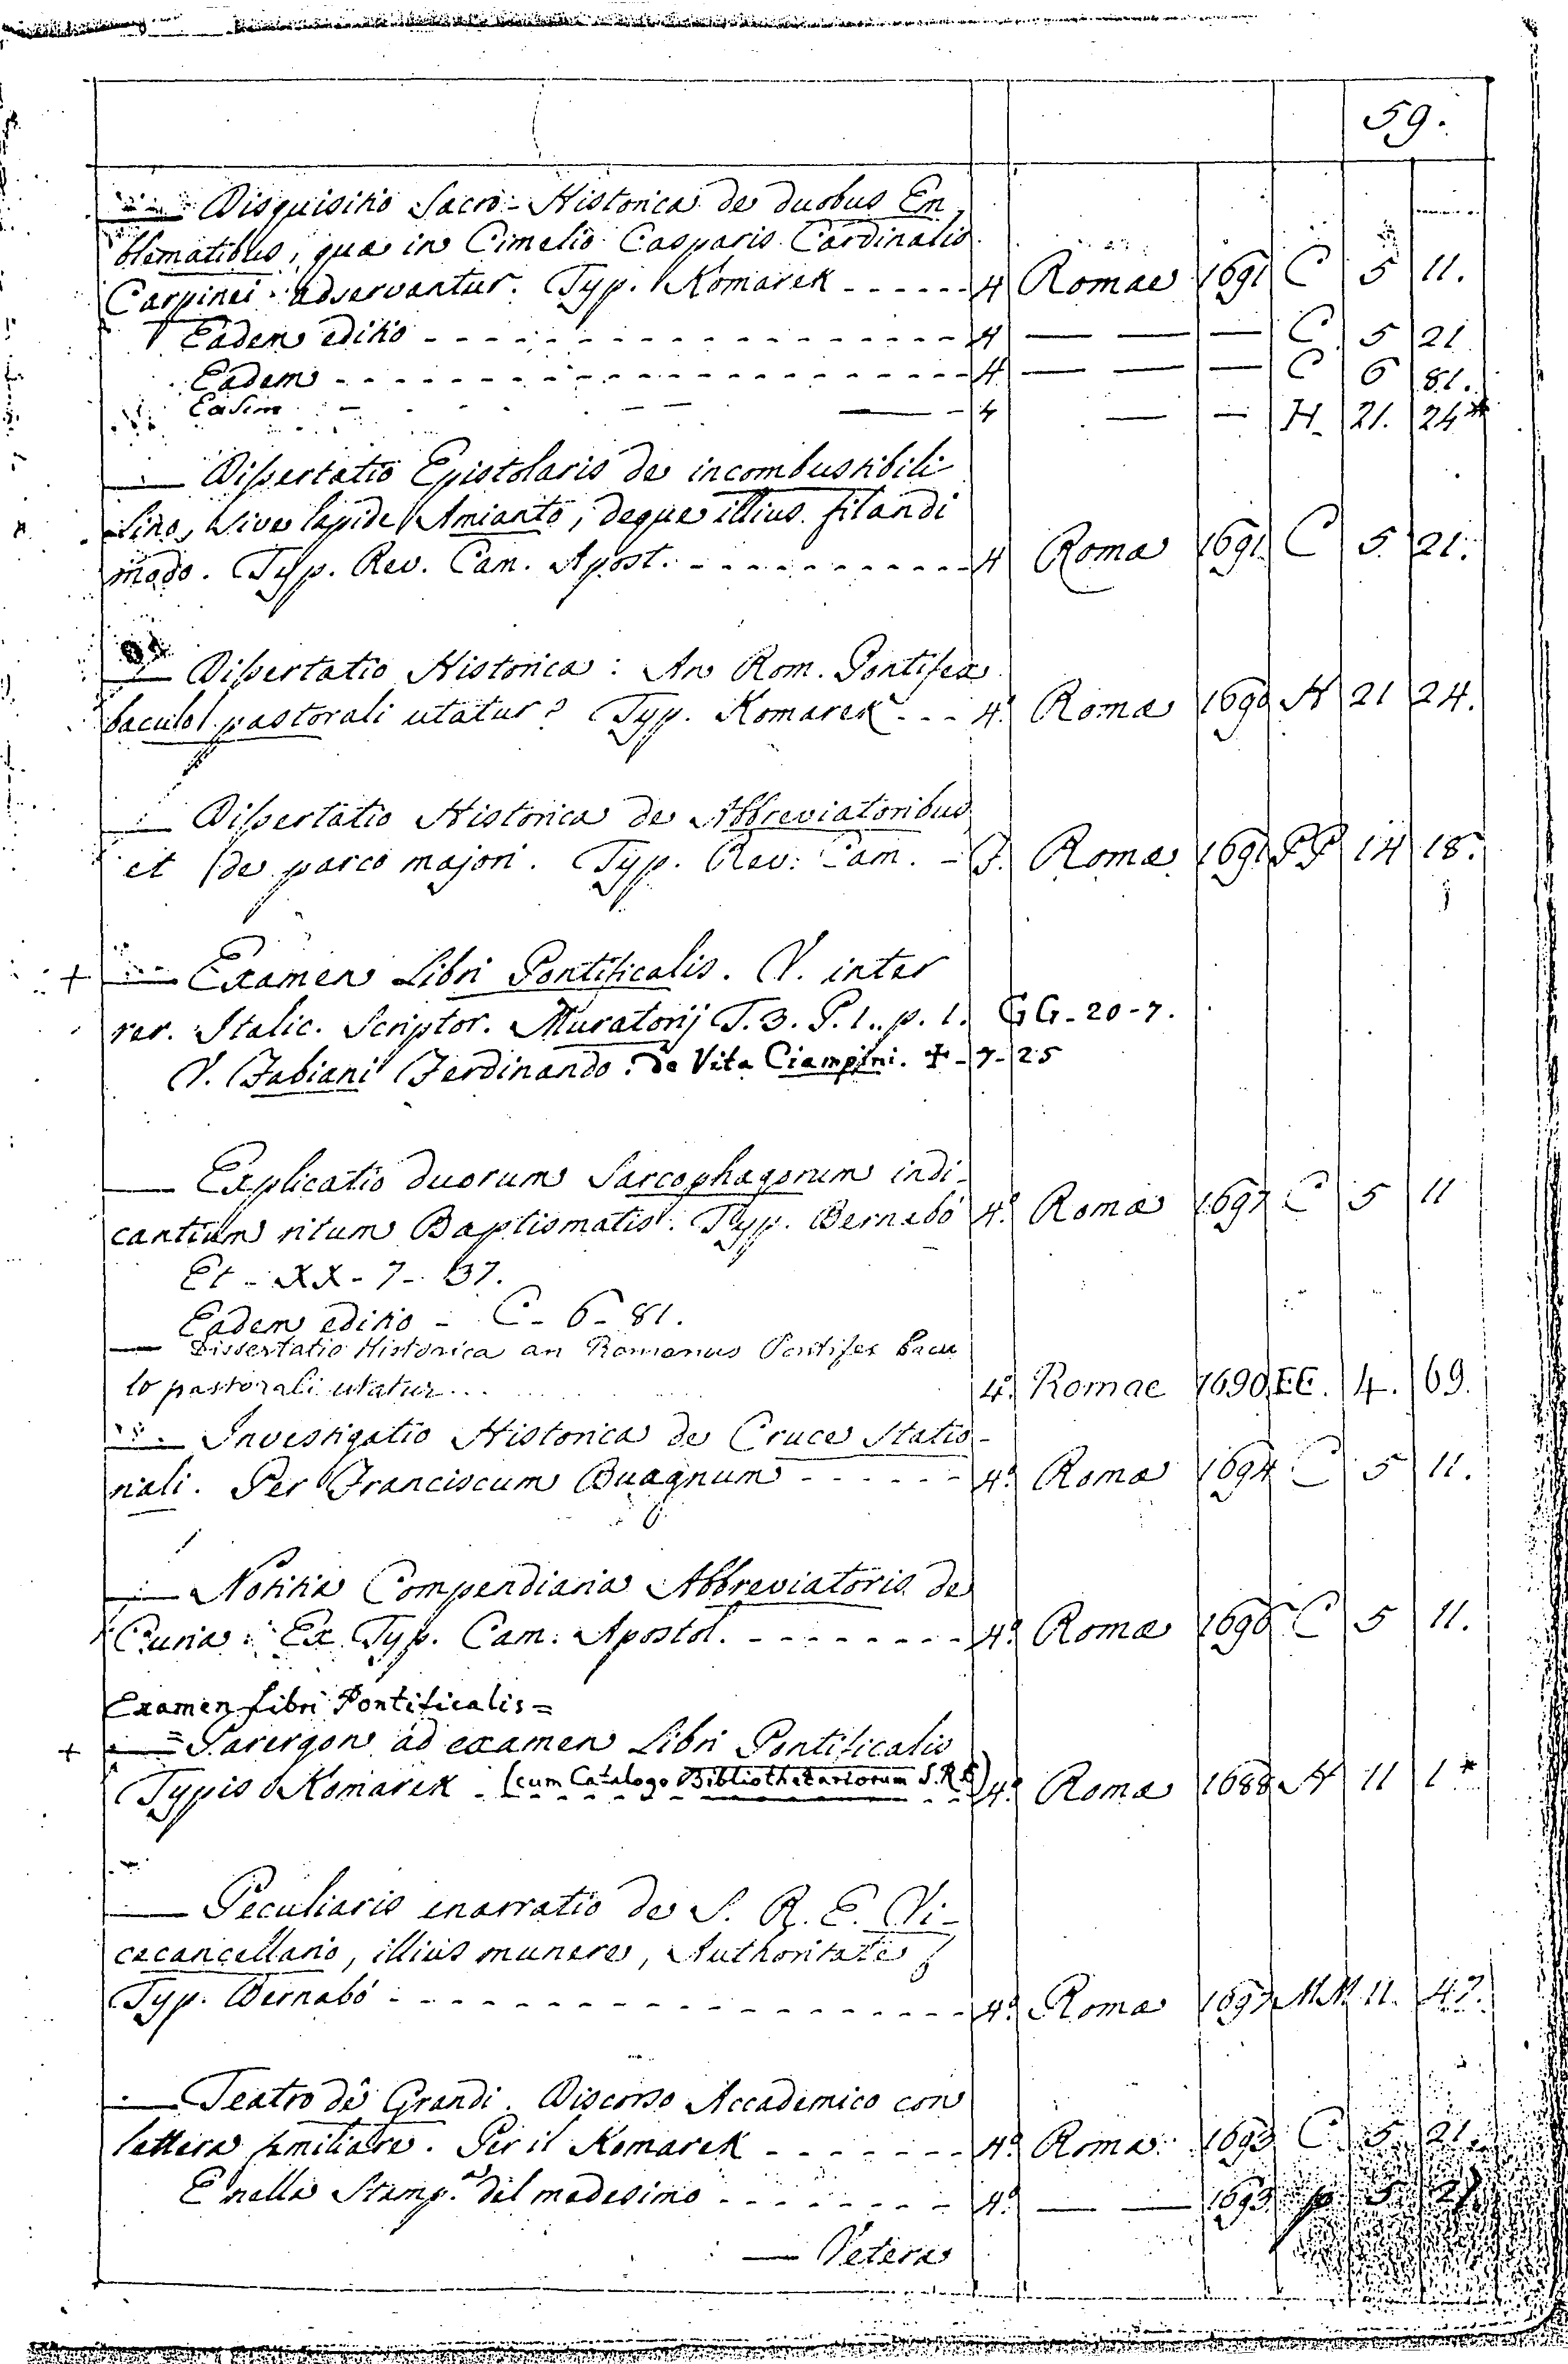 59.
— Disquisitio Sacro-Historica de duobus Em
blematibus, quæ in Cimelio Casparis Cardinalis
Carpinei adservantur. Typ. Komarek - - - - - - 4 Romae 1691 C 5 11.
Eadem editio - - - - - - 4 — — — C 5 21
Eadem - - - - - - 4 — — — C 6 81.
Eadem - - - - — - 4 — — H. 21. 24*
— Dissertatio Epistolaris de incombustibili
Lino, sive lapide Amianto, deque illius filandi
modo. Typ. Rev. Cam. Apost. - - - - - - 4 Romæ 1691 C 5 21.
— Dissertatio Historica: An Rom. Pontifex
baculo pastorali utatur? Typ. Komarek - - - 4º Romæ 1690 H 21 24.
— Dissertatio Historica de Abbreviatoribus
et de parco majori. Typ. Rev. Cam. - F. Romæ 1691 PP 14 18.
+ — Examen Libri Pontificalis. V. inter
rer. Italic. Scriptor. Muratorij T. 3. P. 1. p. 1. GG-20-7.
V. Fabiani Ferdinando: de Vita Ciampini. +-7-25
— Explicatio duorum Sarcophagorum indi-
cantium ritum Baptismatis. Typ. Bernabò 4º Romæ 1697 C 5 11
Et - XX-7- 37.
Eadem editio - C-6-81.
— Dissertatio Historica an Romanus Pontifex bacu
lo pastorali utatur... 4º Romae 1690 EE. 4. 69.
— Investigatio Historica de Cruce Statio-
nali. Per Franciscum Buagnum - - - - - - 4º Romæ 1694 C 5 11.
— Notitia Compendiaria Abbreviatoris de
Curia: Ex Typ. Cam. Apostol. - - - - - - 4º Romæ 1696 C 5 11.
Examen Libri Pontificalis =
+ — = Parergon ad examen Libri Pontificalis
Typis Komarek (cum Catalogo Bibliothecariorum S.R.E.) 4º Romæ 1688 H 11 1*
— Peculiaris enarratio de S. R. E. Vi-
cecancellario, illius munere, Authoritate
Typ. Bernabò - - - - - - 4º Romæ 1697 MM 11. 42.
— Teatro de Grandi. Discorso Accademico con
lettera familiare. Per il Komarek - - - - - - 4º Roma 1693 C 5 21.
E nella Stamp.a del medesimo - - - - - - 4º — — 1693 5 21
— Vetera